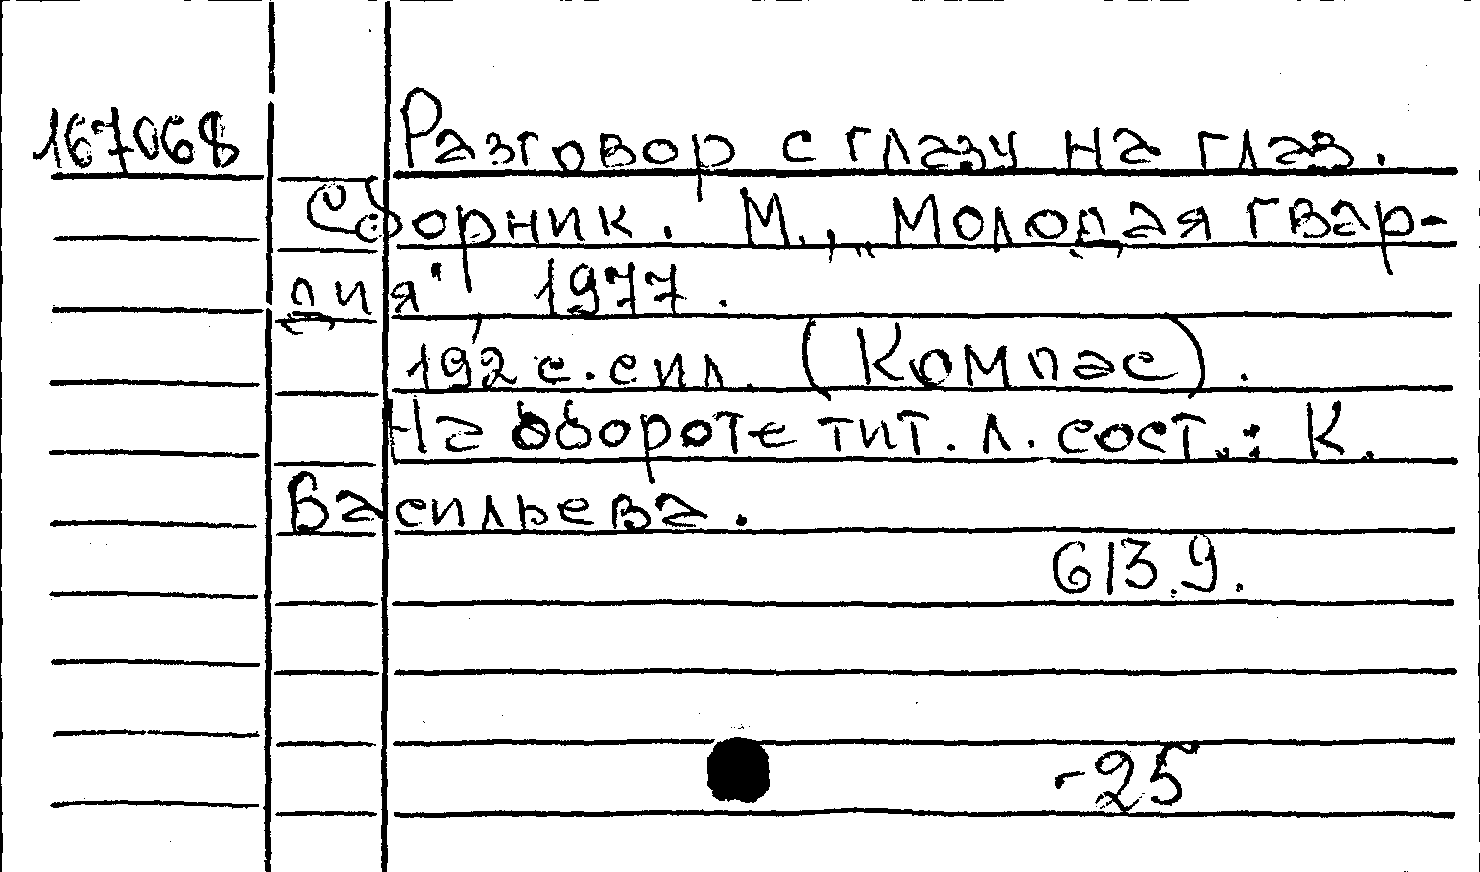 167068 Разговор с глазу на глаз.
Сборник. М., „Молодая гвар-
дия" 1977.
192 с. сил. (Компас).
На обороте тит. л. сост.: К.
Васильева.
613.9.
-25